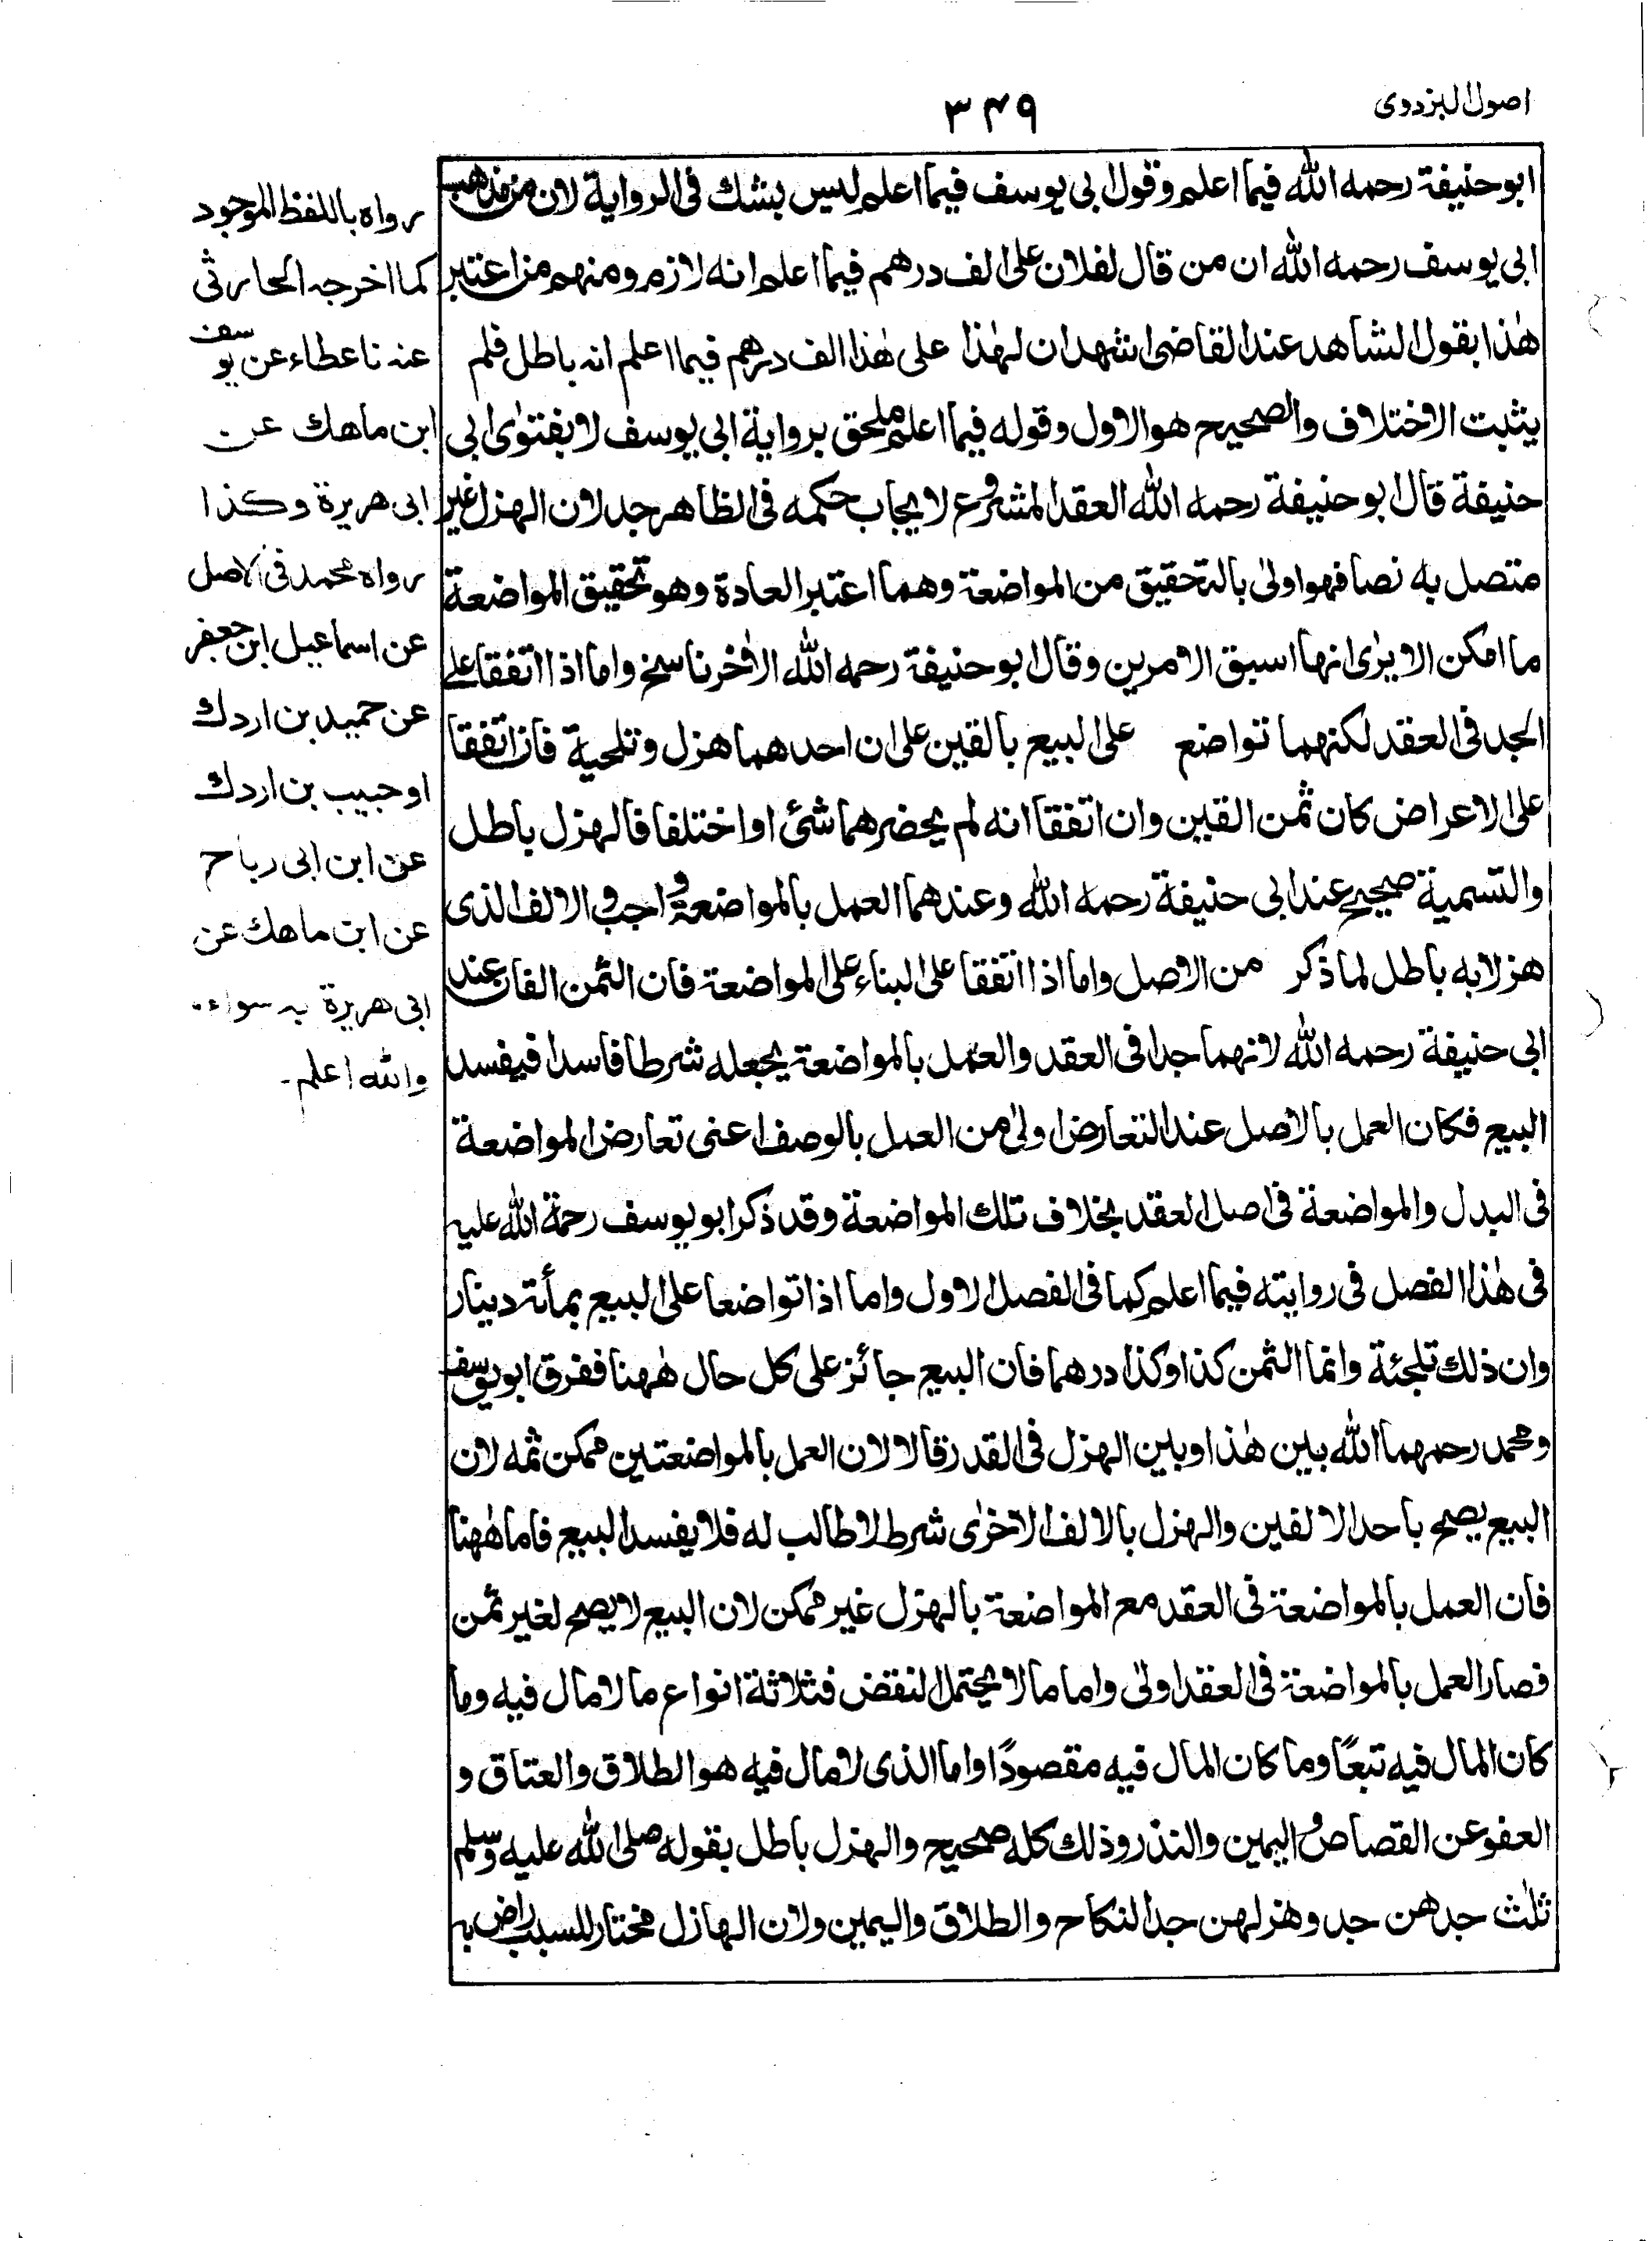 اصول البزدوی
۳۴۹
ابو حنیفة رحمه الله فیما اعلم وقول ابی یوسف فیما اعلم لیس بشك فی الروایة لان من مذهب
ابی یوسف رحمه الله ان من قال لفلان علی الف درهم فیما اعلم انه لازم ومنهم من اعتبر
هٰذا بقول الشاهد عند القاضی اشهد ان لهٰذا علی هٰذا الف درهم فیما اعلم انه باطل فلم
یثبت الاختلاف والصحیح هو الاول وقوله فیما اعلم ملحق بروایة ابی یوسف لا بفتوٰی ابی
حنیفة قال ابو حنیفة رحمه الله العقد المشروع لایجاب حکمه فی الظاهر جد لان الهزل غیر
متصل به نصا فهو اولیٰ بالتحقیق من المواضعة وهما اعتبر العادة وهو تحقیق المواضعة
ما امکن الا یرٰی انها اسبق الامرین وقال ابو حنیفة رحمه الله الاٰخر ناسخ واما اذا اتفقا علے
الجد فی العقد لکنهما تواضع علی البیع بالفین علی ان احدهما هزل وتلجیة فان اتفقا
علی الاعراض کان ثمن الفین وان اتفقا انه لم یحضرهما شئ او اختلفا فالهزل باطل
والتسمیة صحیح عند ابی حنیفة رحمه الله وعندهما العمل بالمواضعة واجب و الالف الذی
هزلا به باطل لما ذکر من الاصل واما اذا اتفقا علی البناء علی المواضعة فان الثمن الفان عند
ابی حنیفة رحمه الله لانهما جدا فی العقد والعمل بالمواضعة یجعله شرطا فاسدا فیفسد
البیع فکان العمل بالاصل عند التعارض اولیٰ من العمل بالوصف اعنی تعارض المواضعة
فی البدل والمواضعة فی اصل العقد بخلاف تلك المواضعة وقد ذکر ابو یوسف رحمة الله علیه
فی هٰذا الفصل فی روایته فیما اعلم کما فی الفصل الاول واما اذا تواضعا علی البیع بمأتہ دینار
وان ذلك تلجئة وانما الثمن کذا وکذا درهما فان البیع جائز علی کل حال هٰهنا ففرق ابو یوسف
ومحمد رحمهما الله بین هٰذا وبین الهزل فی القدر قالا لان العمل بالمواضعتین ممکن ثمه لان
البیع یصح باحد الالفین والهزل بالالف الاخرٰی شرط لا طالب له فلا یفسد البیع فاما هٰهنا
فان العمل بالمواضعة فی العقد مع المواضعة بالهزل غیر ممکن لان البیع لا یصح لغیر ثمن
فصار العمل بالمواضعة فی العقد اولیٰ واما ما لا یحتمل النقض فثلاثة انواع ما لا مال فیه وما
کان المال فیه تبعًا وما کان المال فیه مقصودًا واما الذی لا مال فیه هو الطلاق والعتاق و
العفو عن القصاص و الیمین والنذر وذلك کله صحیح والهزل باطل بقوله صلی الله علیه وسلم
ثلٰث جدهن جد وهزلهن جد النکاح والطلاق والیمین ولان الهازل مختار للسبب راض به
رواه باللفظ الموجود
کما اخرجہ الحارثی
عنہ نا عطاء عن یوسف
ابن ماهك عن
ابی هریرة وکذا
رواه محمد فی الاصل
عن اسماعیل ابن جعفر
عن حمید بن اردك
او حبیب بن اردك
عن ابن ابی رباح
عن ابن ماهك عن
ابی هریرة بہ سواء۔
والله اعلم۔